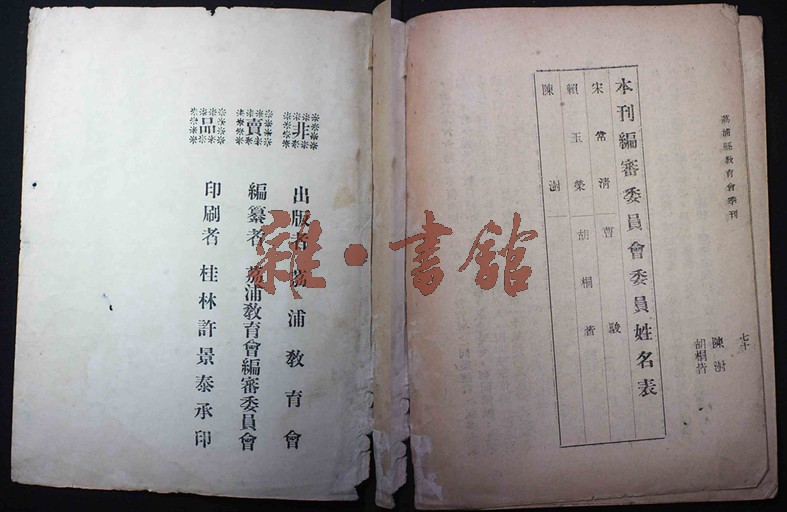 荔浦縣教育會季刊
七十
陳澍
胡桐
本刊編審委員會委員姓名表
宋常清
曹駿
賴玉榮
胡桐
陳澍
非賣品
出版者 荔浦教育會
編纂者 荔浦教育會編審委員會
印刷者 桂林許景泰承印
雜·書館